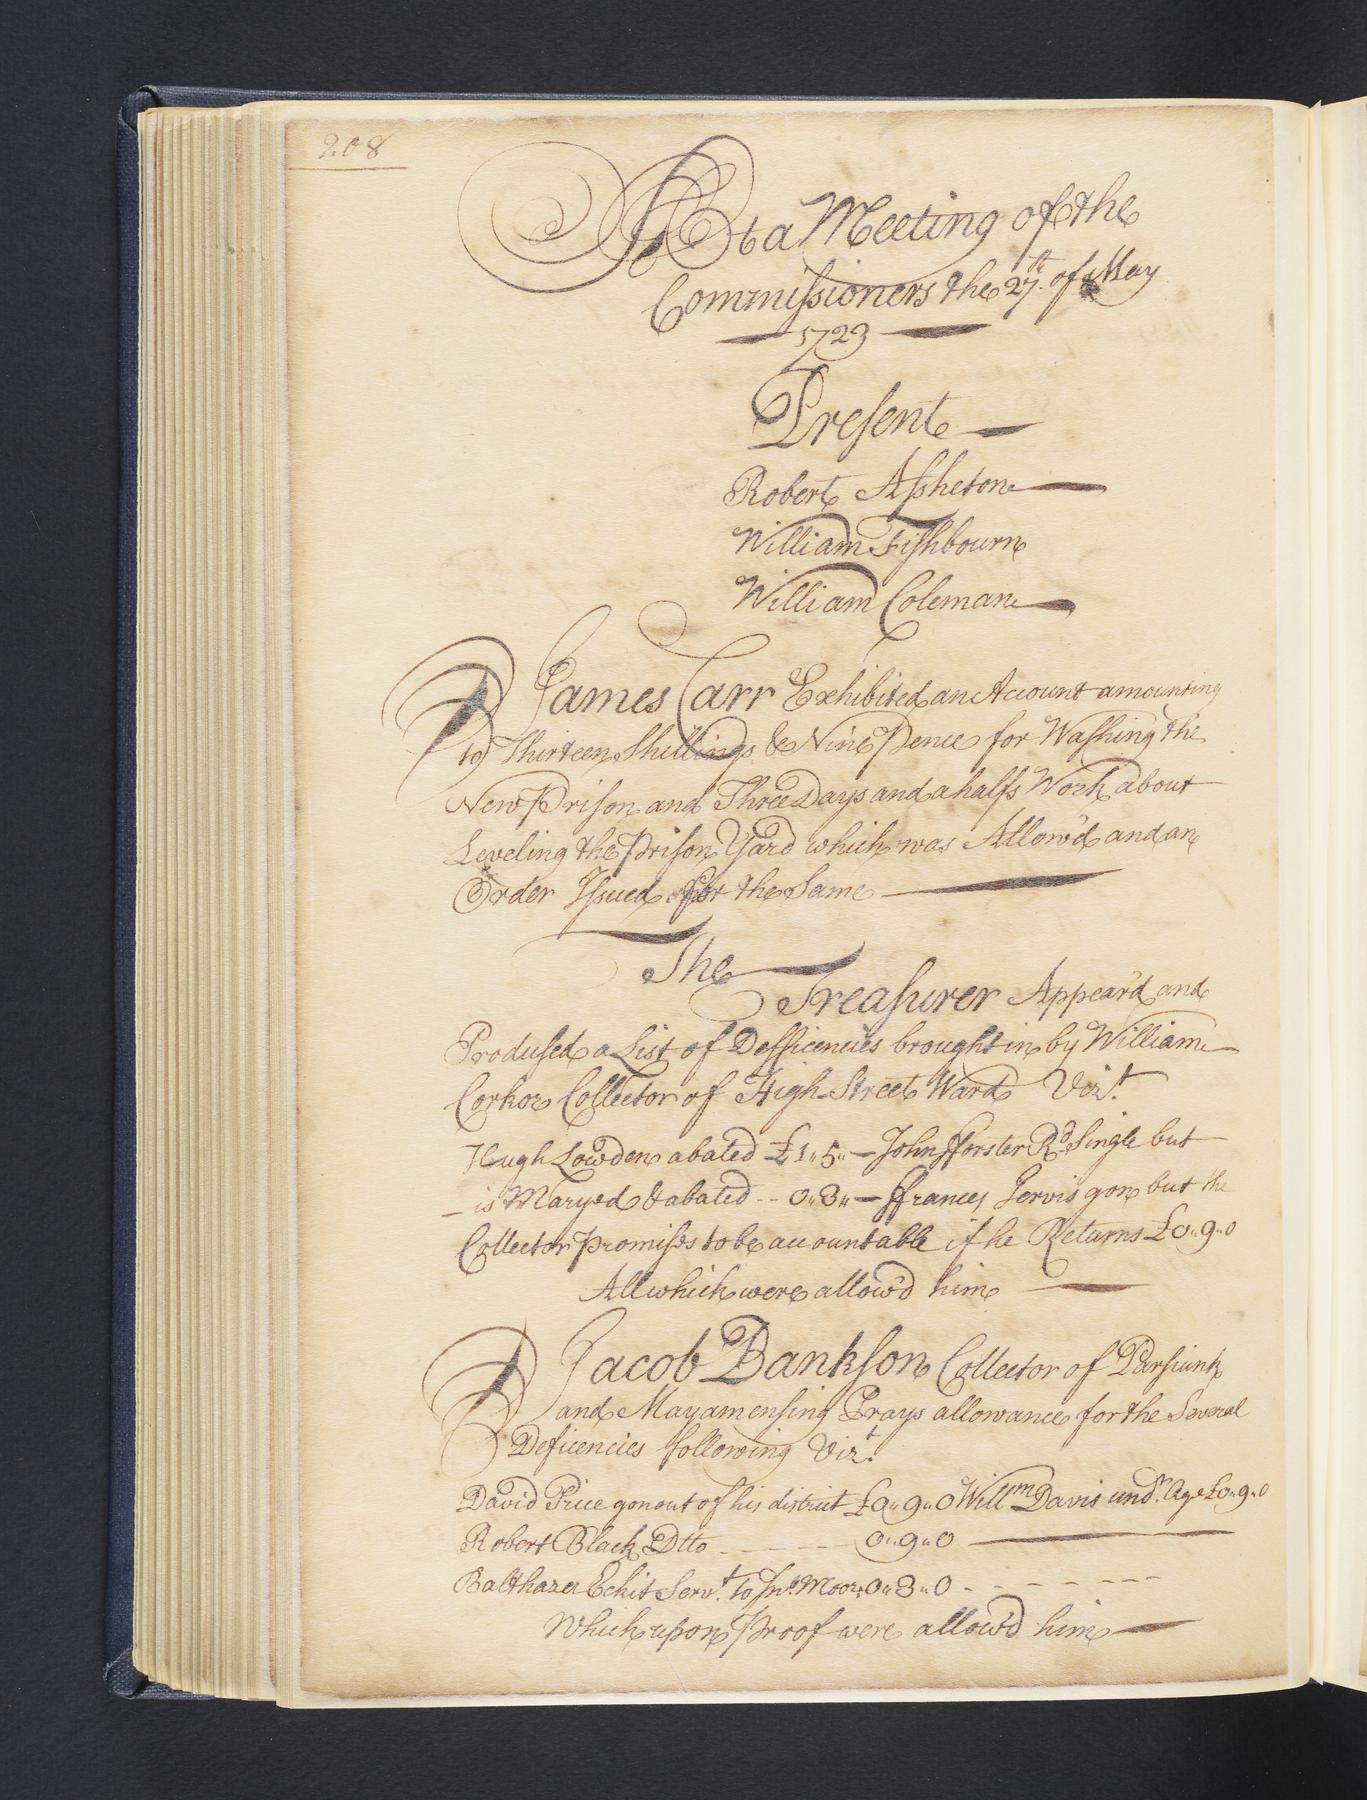 208
At a Meeting of the
Commiſsioners the 27th. of May
1723
Preſent
Robert Aſsheton
William Fiſhbourn
William Coleman
James Carr Exhibited an Account amounting
to Thirteen Shillings & Nine Pence for Waſhing the
New Priſon and Three Days and a halfs Work about
Leveling the Priſon Yard which was Allow'd and an
Order Iſsued for the Same
The
Treaſurer Appear'd and
Produſed a List of Defficencies brought in by William
Corker Collector of High-Street Ward Vizt.
Hugh Lowden abated £1"5"— John fforster Rd. Single but
is Maryed & abated -- 0"3"— ffrances Jervis gon but the
Collector promiſes to be accountable if he Returns £0"9"0
All which were allow'd him
Jacob Bankſon Collector of Paſsiunk
and Mayamenſing Prays allowance for the Several
Deficencies following Vizt.
David Price gon out of his district £0"9"0 Willm Davis undr. Age £0"9"0
Robert Black Dtto ---- 0"9"0
Balthazer Echit Servt. to Jno. Moor 0"3"0 - - - - -
Which upon Proof were allow'd him